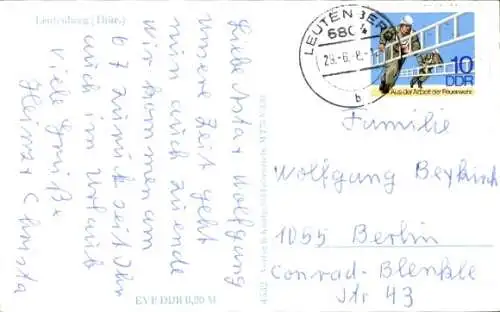 Leutenberg (Thür.)
Liebe Asta + Wolfgang
unsere Zeit geht
nun auch zu ende
wir kommen am
6.7 zurück seit Ihr
auch im Urlaub
viele Grüße
Heinz + Christa
EVP DDR 0,20 M
LEUTENBERG
6804
b
10
DDR
Aus der Arbeit der Feuerwehr
Familie
Wolfgang
1055 Berlin
Conrad-Blenkle
Str 43